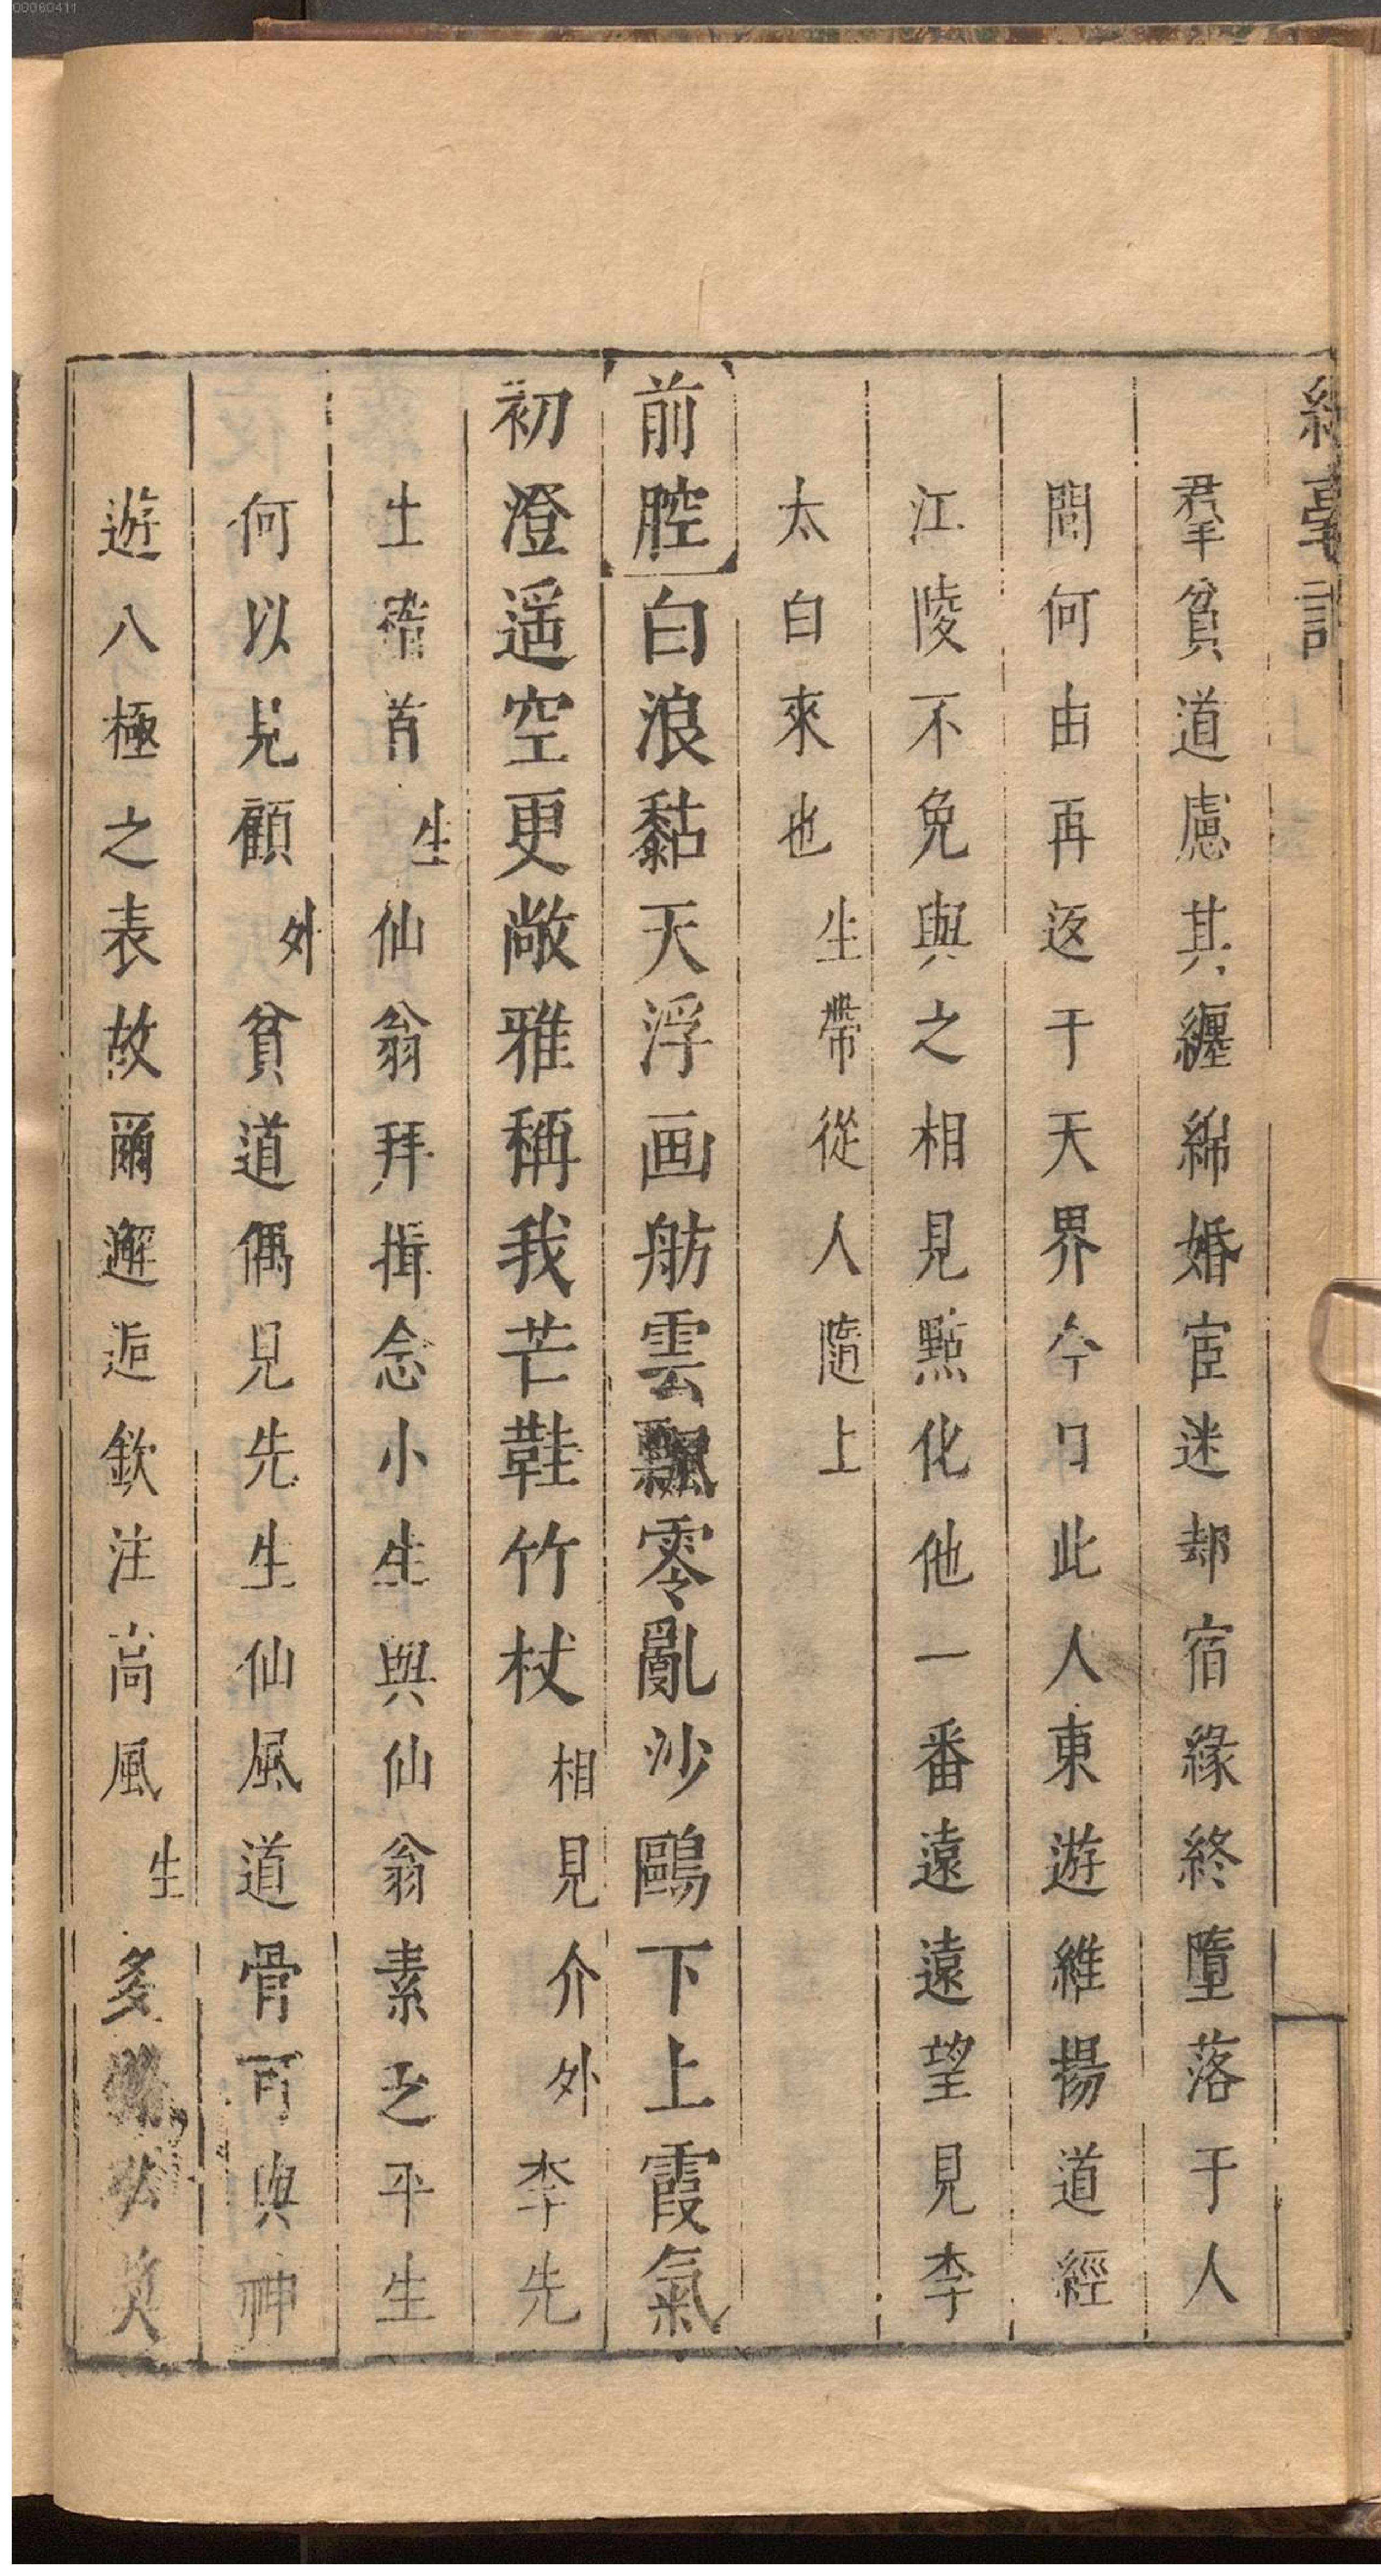 綵毫記
羣貧道慮其纏綿婚宦迷却宿緣終墮落于人
間何由再返于天界今日此人東遊維揚道經
江陵不免與之相見點化他一番遠遠望見李
太白來也 生帶從人隨上
前腔 白浪黏天浮画舫雲飄零亂沙鷗下上霞氣
初澄遥空更敞雅稱我芒鞋竹杖 相見介外 李先
生稽首 生 仙翁拜揖念小生與仙翁素乏平生
何以見顧 外 貧道偶見先生仙風道骨可與神
遊八極之表故爾邂逅欽注高風 生
00060411